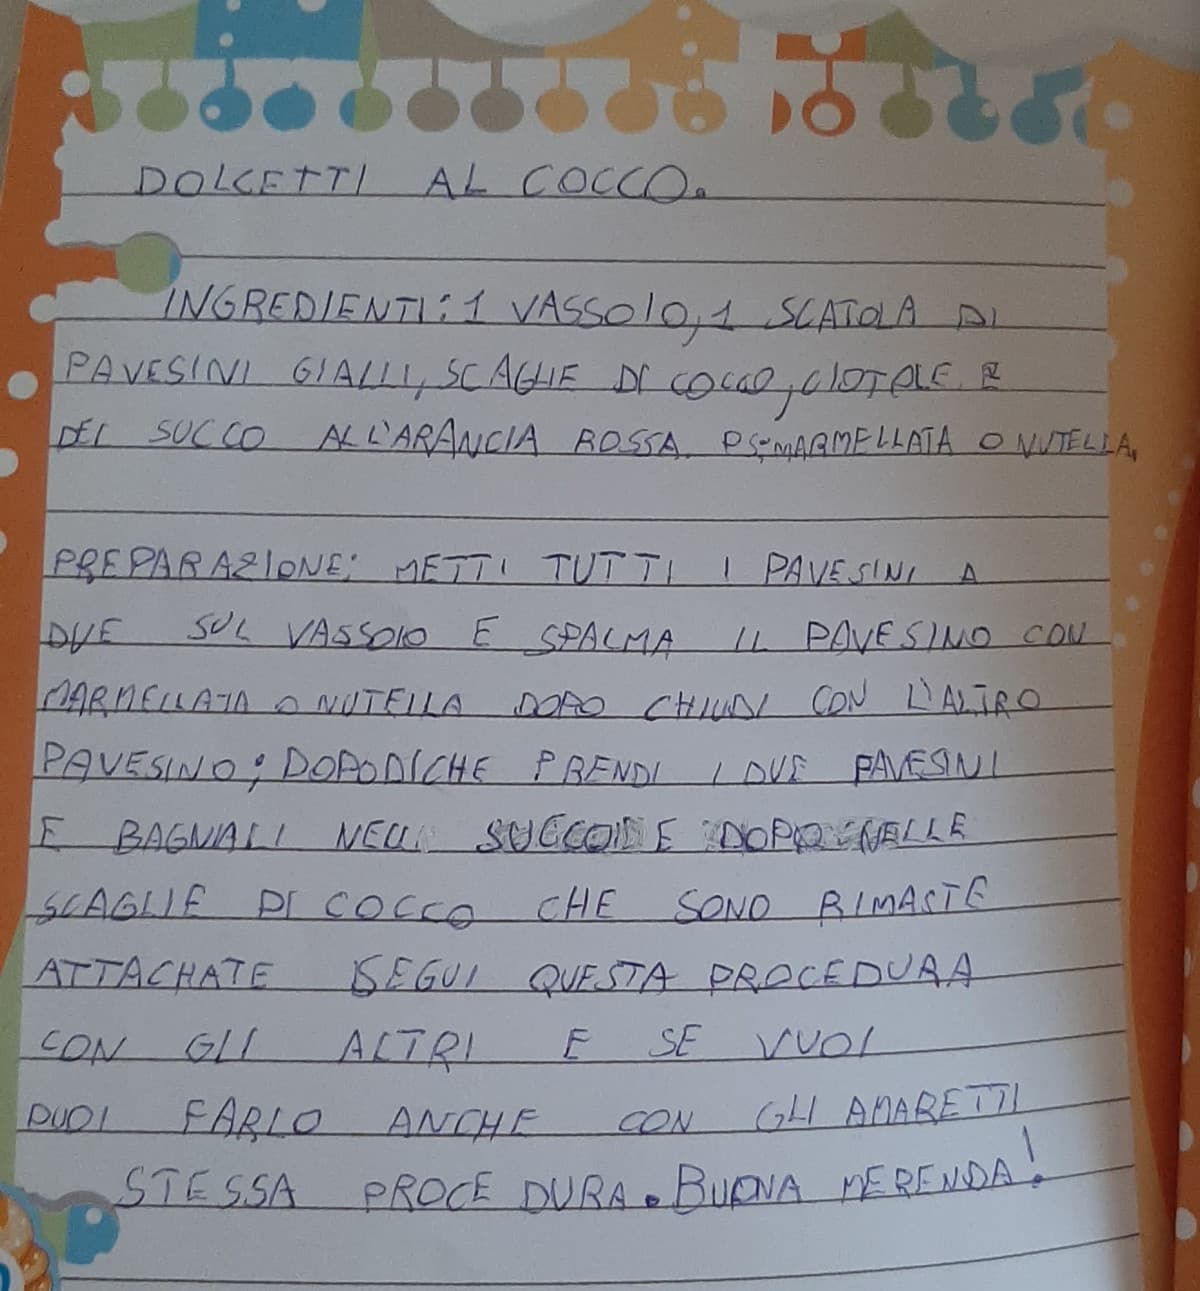 DOLCETTI AL COCCO.
INGREDIENTI: 1 VASSOIO, 1 SCATOLA DI
PAVESINI GIALLI, SCAGLIE DI COCCO, CIOTOLE E
DEL SUCCO ALL'ARANCIA ROSSA. PS: MARMELLATA O NUTELLA.
PREPARAZIONE: METTI TUTTI I PAVESINI A
DUE SUL VASSOIO E SPALMA IL PAVESINO CON
MARMELLATA O NUTELLA DOPO CHIUDI CON L'ALTRO
PAVESINO; DOPODICHE PRENDI I DUE PAVESINI
E BAGNALI NELL SUCCO E DOPO NELLE
SCAGLIE DI COCCO CHE SONO RIMASTE
ATTACHATE SEGUI QUESTA PROCEDURA
CON GLI ALTRI E SE VUOI
PUOI FARLO ANCHE CON GLI AMARETTI
STESSA PROCEDURA. BUONA MERENDA!